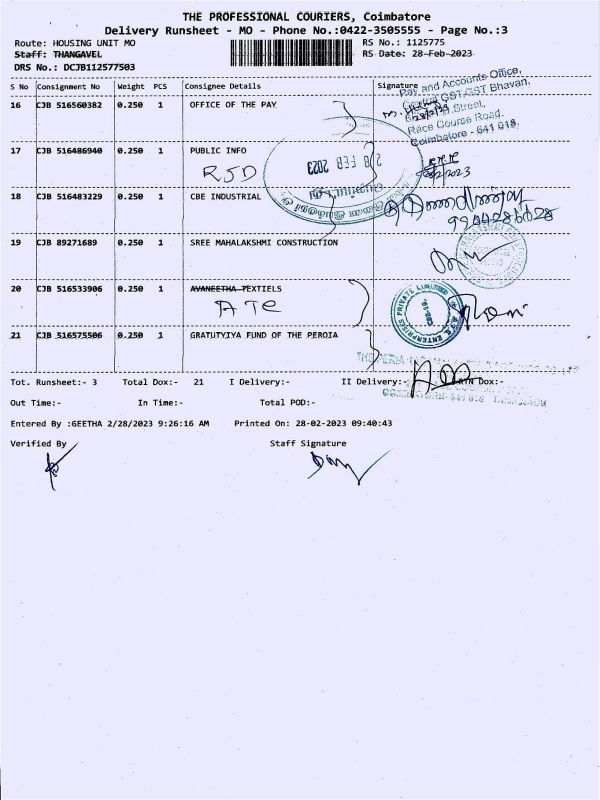 THE PROFESSIONAL COURIERS, Coimbatore
Delivery Runsheet - MO - Phone No.:0422-3505555 - Page No.:3
Route: HOUSING UNIT MO RS No.: 1125775
Staff: THANGAVEL RS Date: 28-Feb-2023
DRS No.: DCJB112577503
S No Consignment No Weight PCS Consignee Details Signature
Pay and Accounts Office,
GST Bhavan,
Street,
Race Course Road,
Coimbatore - 641 018.
16 CJB 516560382 0.250 1 OFFICE OF THE PAY
17 CJB 516486940 0.250 1 PUBLIC INFO
RJD
28 FEB 2023
18 CJB 516483229 0.250 1 CBE INDUSTRIAL
19 CJB 89271689 0.250 1 SREE MAHALAKSHMI CONSTRUCTION
20 CJB 516533906 0.250 1 AVANEETHA TEXTIELS
ATC
ENTERPRISES PRIVATE LIMITED
CBE-18.
21 CJB 516575506 0.250 1 GRATUTYIYA FUND OF THE PEROIA
Tot. Runsheet:- 3 Total Dox:- 21 I Delivery:- II Delivery:- RTN Dox:-
Out Time:- In Time:- Total POD:-
Entered By :GEETHA 2/28/2023 9:26:16 AM Printed On: 28-02-2023 09:40:43
Verified By Staff Signature